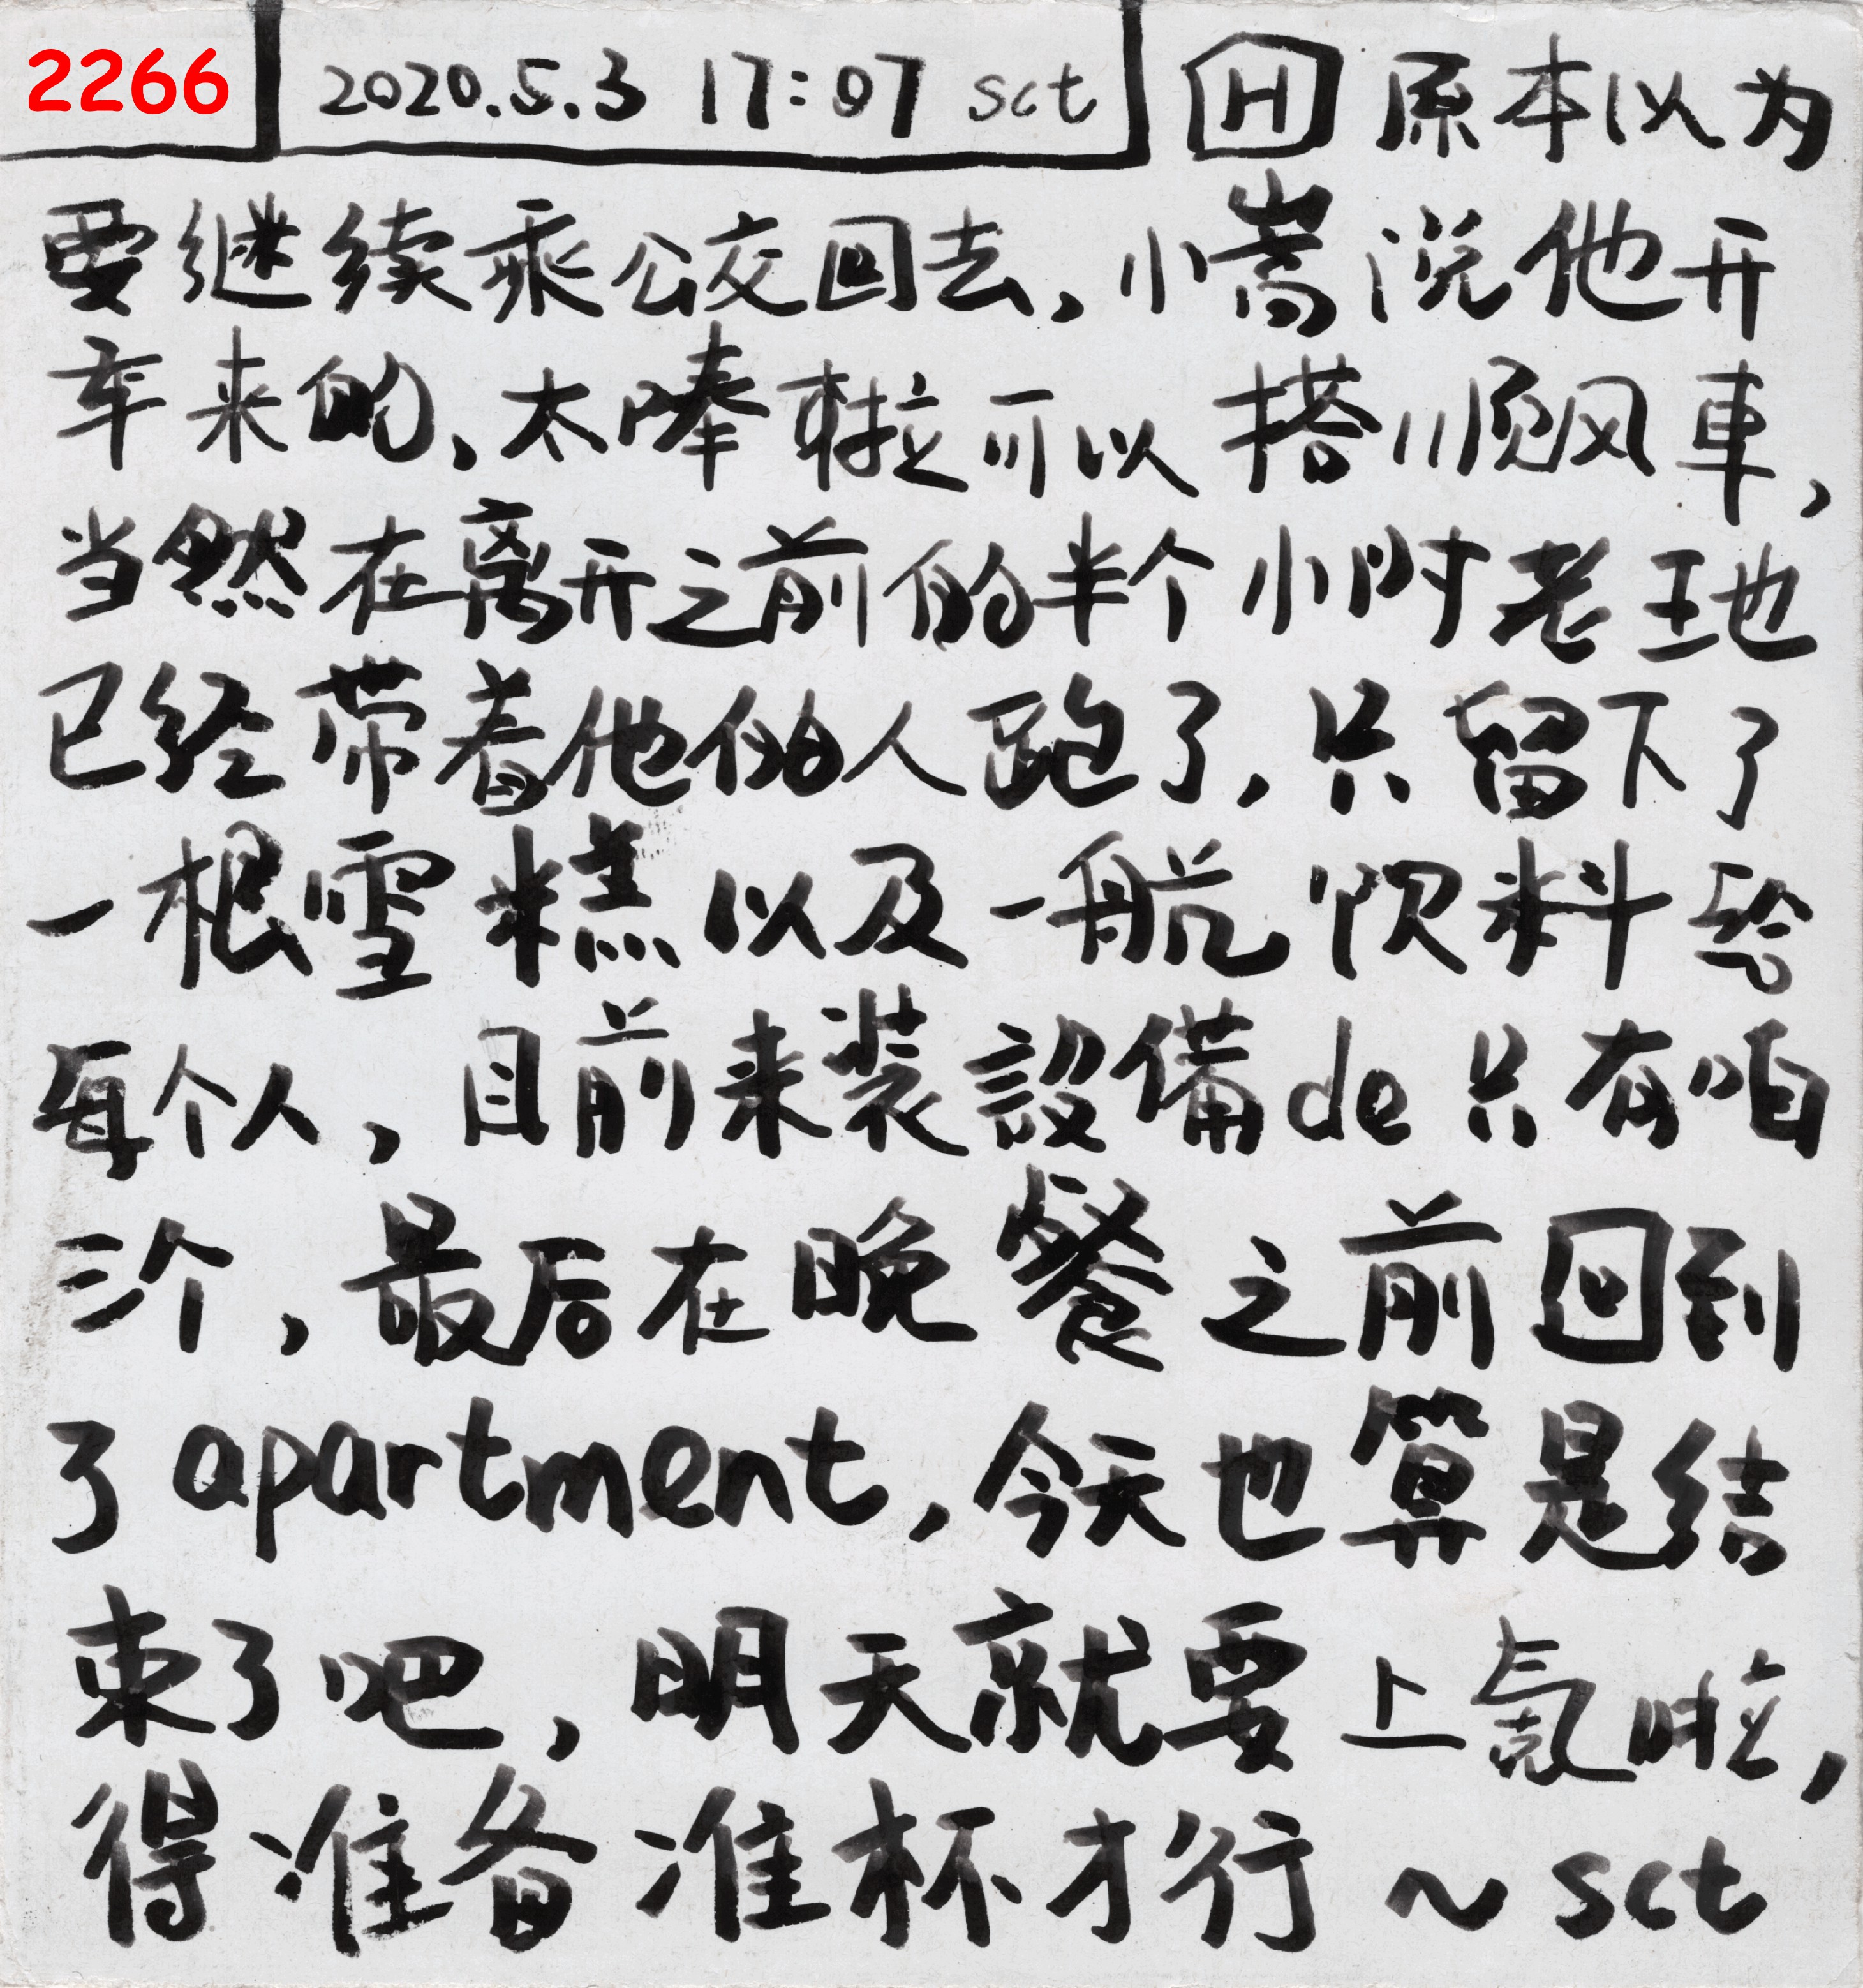 2266 2020.5.3 17:07 sct H 原本以为
要继续乘公交回去,小嵩说他开
车来的,太唪啦可以搭顺风車,
当然在离开之前的半个小时老王地
已经带着他的人跑了,只留下了
一根雪糕以及一航饮料给
每个人,目前来装設備de只有咱
三个,最后在晚餐之前回到
了apartment,今天也算是结
束了吧,明天就要上氪啦,
得准备准杯才行~sct